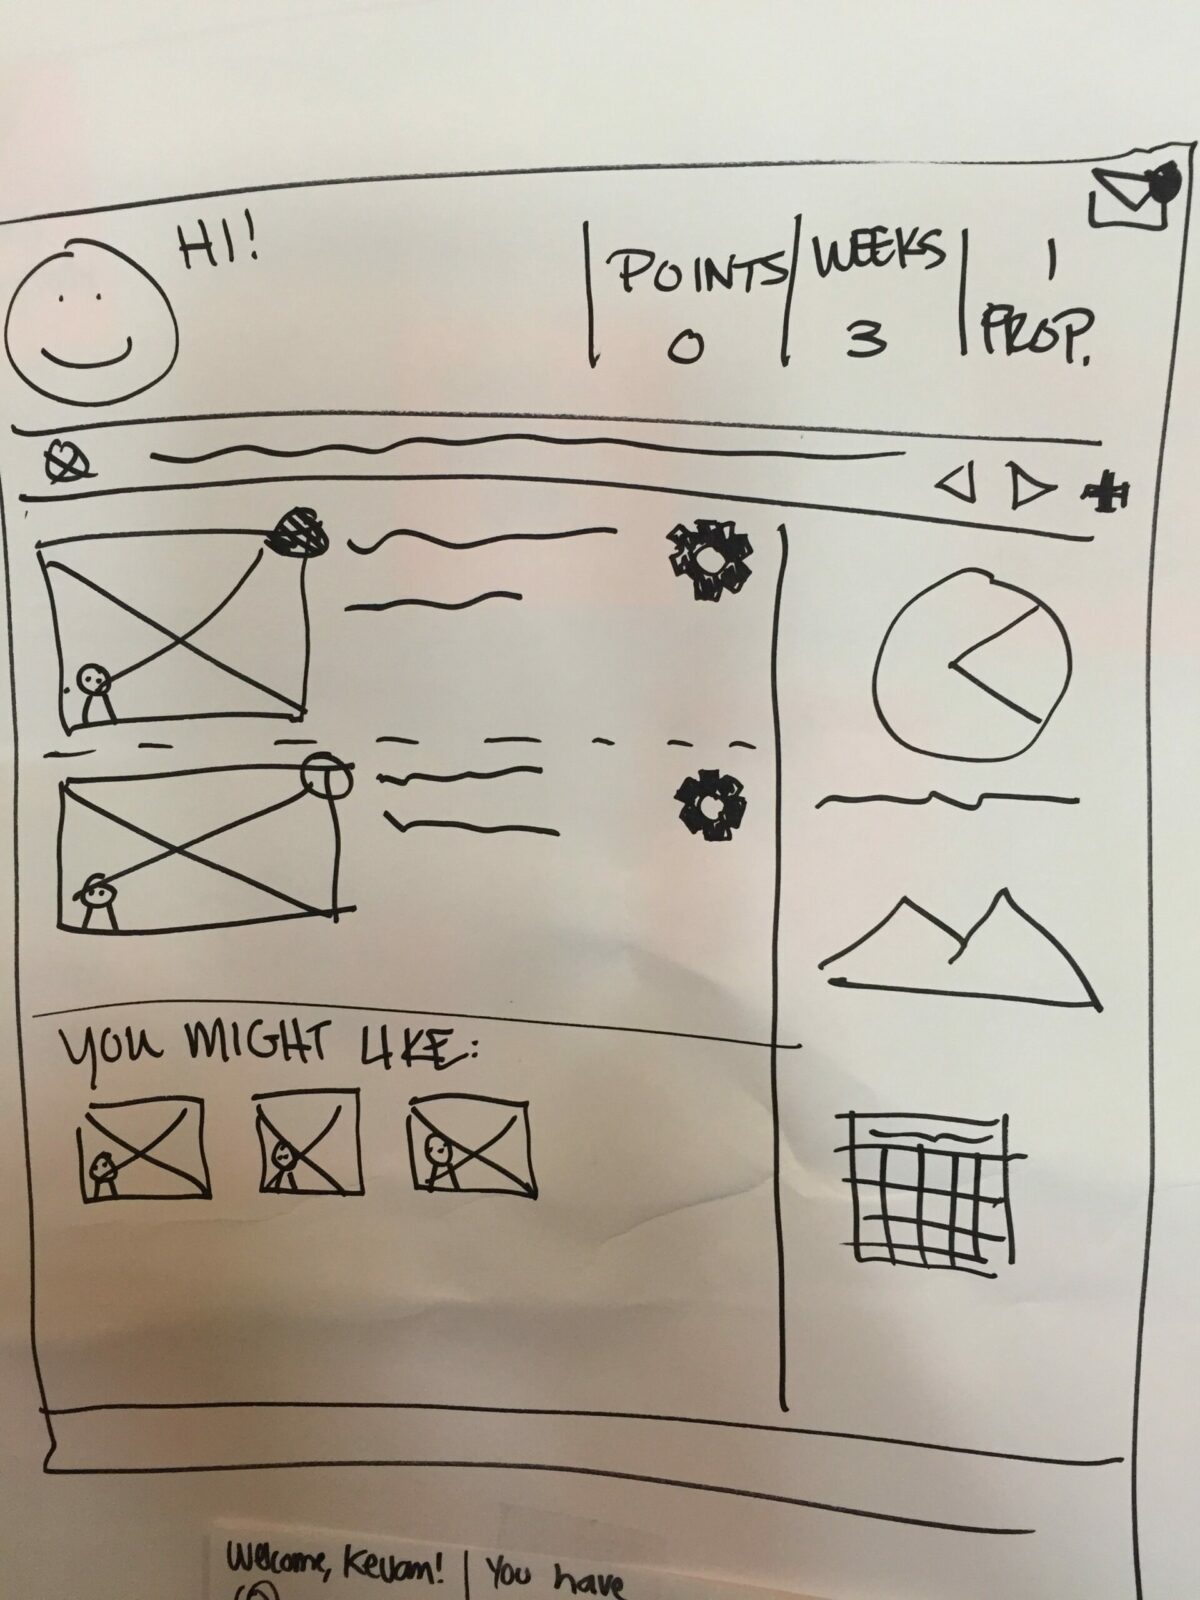 HI!
POINTS
0
WEEKS
3
1
PROP.
YOU MIGHT LIKE:
Welcome, Kevam! | You have